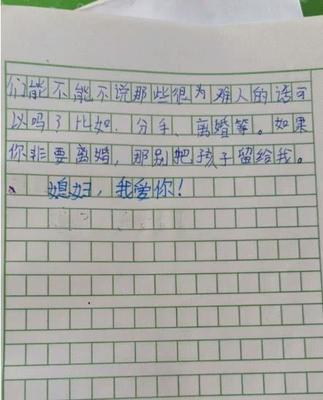 们能不能不说那些很为难人的话可
以吗？比如．分手、离婚等。如果
你非要离婚，那别把孩子留给我。
媳妇，我爱你！